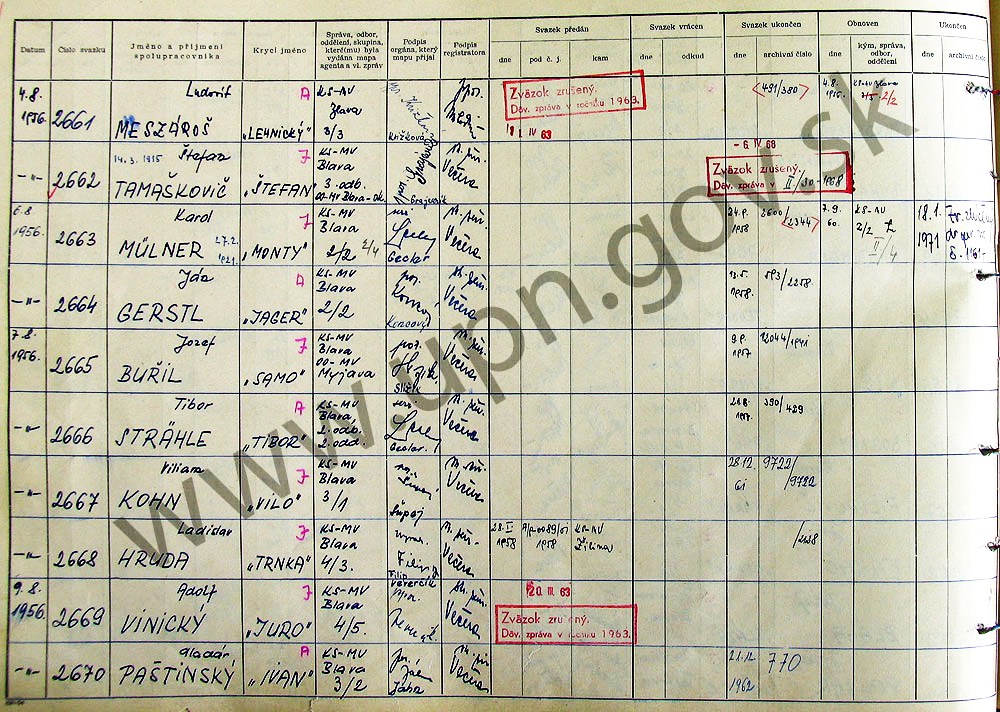 Datum
Číslo svazku
Jméno a příjmení
spolupracovníka
Krycí jméno
Správa, odbor,
oddělení, skupina,
které(mu) byla
vydána mapa
agenta a vl. zpráv
Podpis
orgána, který
mapu přijal
Podpis
registratora
Svazek předán
dne
pod č. j.
kam
Svazek vrácen
dne
odkud
Svazek ukončen
dne
archivní číslo
Obnoven
dne
kým, správa,
odbor,
oddělení
Ukončen
dne
archivní číslo
4.8.
1956.
2661
Ludovít
MESZÁROŠ
A
„LEHNICKÝ“
KS-MV
Blava
3/3
Križková
Zväzok zrušený.
Dáv. zpráva v ročníku 1963.
IV 63
491/380
4.8.
2/2
-"-
2662
14.3.1915
Štefan
TAMAŠKOVIČ
F
„ŠTEFAN“
KS-MV
Blava
3. odb.
Večera
- 6. IV. 68
Zväzok zrušený.
Dáv. zpráva v II/30-1968
6.8
1956.
2663
Karol
MÜLNER
27.2.
1921.
F
„MONTY“
KS-MV
Blava
2/2 2/4
Geolar
Večera
24.9.
1958
2600
2344
7.9.
60.
KS-MV
2/2
II/4
18.1.
1971
-"-
2664
Ján
GERSTL
A
„JAGER“
KS-MV
Blava
2/2
Večera
13.5.
1958.
593/2258.
7.8.
1956.
2665
Jozef
BUŘIL
F
„SAMO“
KS-MV
Blava
OO-MV
Myjava
Slížik
Večera
9.9.
1957
12044/1941
-"-
2666
Tibor
STRÄHLE
A
„TIBOR“
KS-MV
Blava
2. odb.
2. odd.
Geolar.
Večera
390/429
-"-
2667
Viliam
KOHN
F
„VILO“
KS-MV
Blava
3/1
Šupej
Večera
28.12.
61
9722/9722
-"-
2668
Ladislav
HRUDA
F
„TRNKA“
KS-MV
Blava
4/3.
Filip
Večera
28.II
1958
A/20089/01
1958
KS-MV
Žilina
9.8.
1956.
2669
Adolf
VINICKÝ
F
„JURO“
KS-MV
Blava
4/5.
Večera
20. III. 63
Zväzok zrušený.
Dáv. zpráva v ročníku 1963.
-"-
2670
PAŠTINSKÝ
A
„IVAN“
KS-MV
Blava
3/2
Jaha
Večera
21.12.
1962
770
www.upn.gov.sk